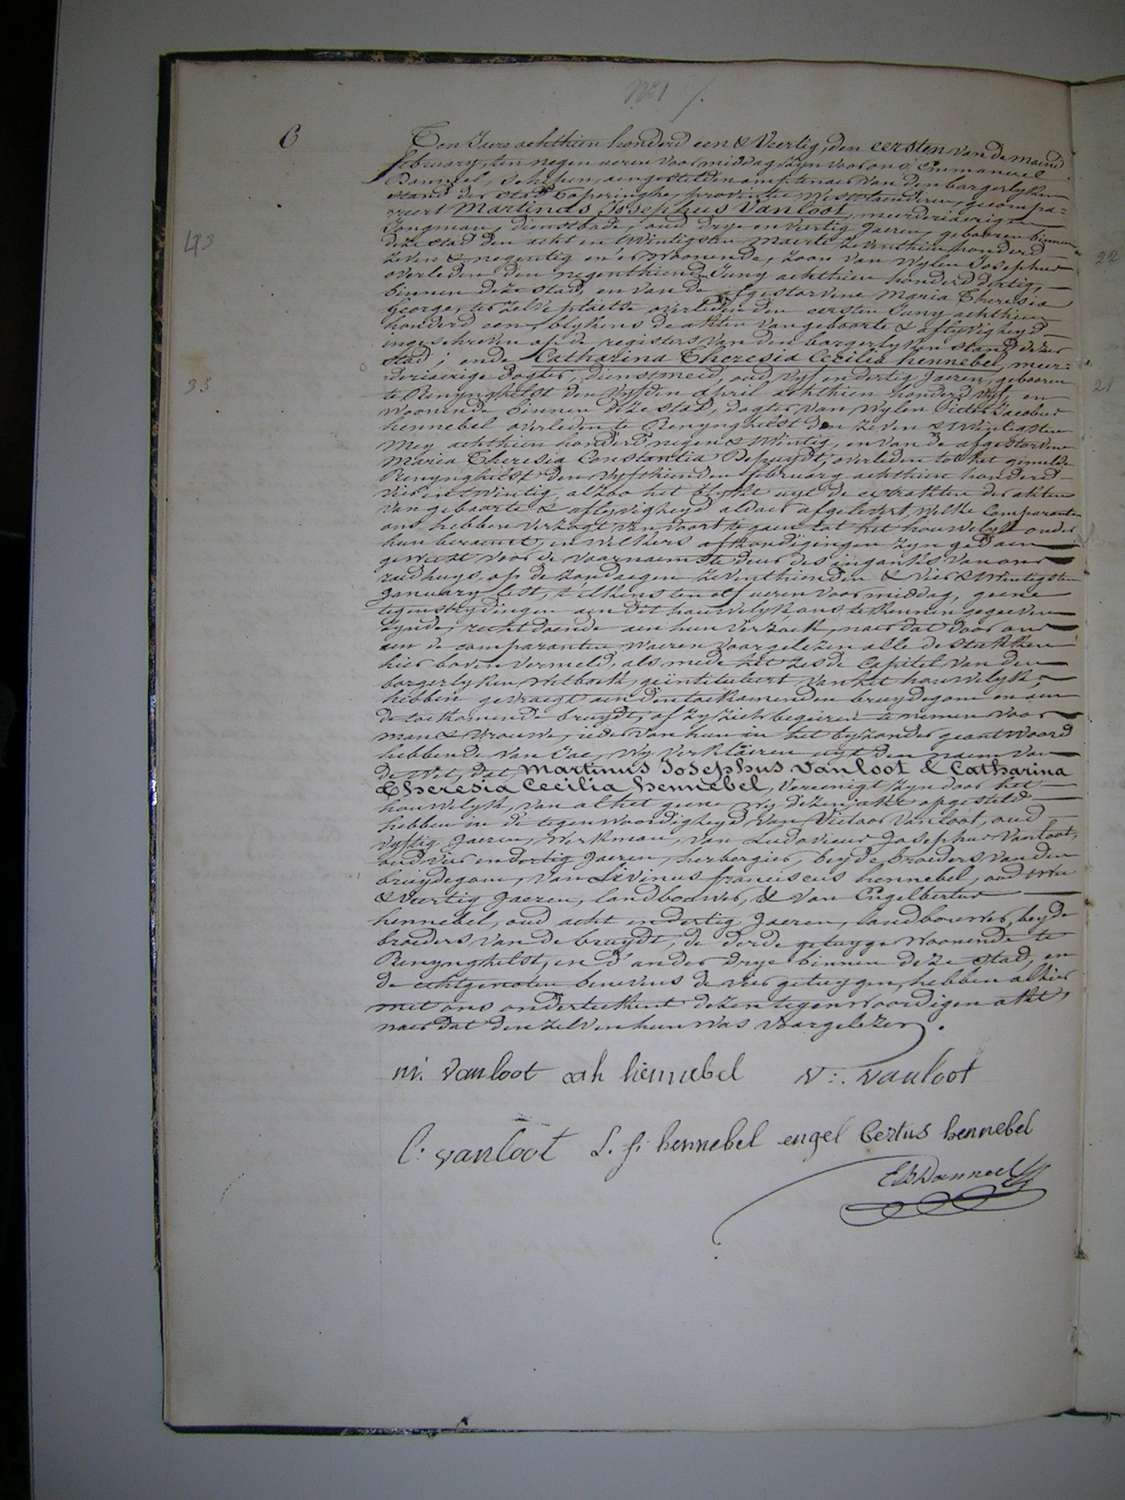 N° 1 /.
6
Ten Jare achthien honderd een & Veertig, den eersten van de maend
february, ten negen ueren voor middag, zyn voor ons Emmanuel
Danneel, schepen, aengestelden amptenaer van den borgerlyken
stand der stad Poperinghe, provintie Westvlaenderen, gecompa=
reert Martinus Josephus Vanloot, meerderjaerigen
Jongman, dienstbode, oud drye en veertig Jaeren, gebooren binnen
deze stad den acht en twintigsten maerte zeventhien honderd
43
zeven & negentig en er woonende, zoon van wylen Josephus
overleden den negenthienden Juny achthien honderd dertig,
binnen deze stad, en van de afgestorvene Maria Theresia
George, ter zelve plaetse overleden den eersten Juny achthien
honderd een, blykens de akten van geboorte & aflyvigheyd
ingeschreven op de registers van den borgerlyken stand dezer
stad; ende Catharina Theresia Cecilia hennebel, meer=
derjaerige dogter, dienstmeid, oud vyf en dertig Jaeren, gebooren
35
te Renynghelst den vyfden April achthien honderd vyf, en
woonende binnen deze stad, dogter van wylen Pieter Jacobus
hennebel overleden te Renynghelst den zeven & twintigsten
Mey achthien honderd negen & twintig, en van de afgestorvene
Maria Theresia Constantia Depuydt, overleden tot het gemelde
Renynghelst den vyfthienden february achthien honderd
vier en twintig, alzoo het blykt uyt de extrakten der akten
van geboorte & aflyvigheyd aldaer afgelevert, welke comparanten
ons hebben verzogt van voort te gaen tot het houwelyk onder
hun beraemt, en welkers afkondigingen zyn gedaen
geweest voor de voornaemste deur des ingangs van ons
raedhuys, op de zondagen zeventhienden & vier & twintigsten
January lest, telkens ten elf ueren voor middag, geene
tegenstrydingen aen dit houwelyk ons te kennen gegeeven
zynde, recht doende aen hun verzoek, naer dat door ons
aen de comparanten waeren voorgelezen alle de stukken
hier boven vermeld, als mede het zesde Capitel van den
borgerlyken wetboek, geïntituleert van het houwelyk,
hebben gevraegt aen den toekomenden bruydegom en aen
de toekomende bruydt, of zy zich begeeren te nemen voor
man & vrouwe, ieder van hun in het byzonder geantwoord
hebbende van Jae, wy verklaeren uyt den naem van
de wet, dat Martinus Josephus Vanloot & Catharina
Theresia Cecilia hennebel, vereenigt zyn door het
houwelyk, van al het geene wy dezen akt opgesteld
hebben in de tegenwoordigheyd van Victoor Vanloot, oud
vyftig Jaeren, werkman, van Ludovicus Josephus Vanloot,
oud vier en dertig Jaeren, herbergier, beyde broeders van den
bruydegom, van Livinus franciscus hennebel, oud een
& veertig Jaeren, landbouwer, & van Engelbertus
hennebel, oud acht en dertig Jaeren, landbouwer, beyde
broeders van de bruydt, de derde getuyge woonende te
Renynghelst, en d'ander drye binnen deze stad, en
de echtgenoten benevens de vier getuygen, hebben alhier
met ons onderteekent dezen tegenwoordigen akt,
naer dat den zelven hun was voorgelezen.
m. vanloot cath hennebel v:. vanloot
l: vanloot L. f: hennebel engel bertus hennebel
E Danneel
22
21